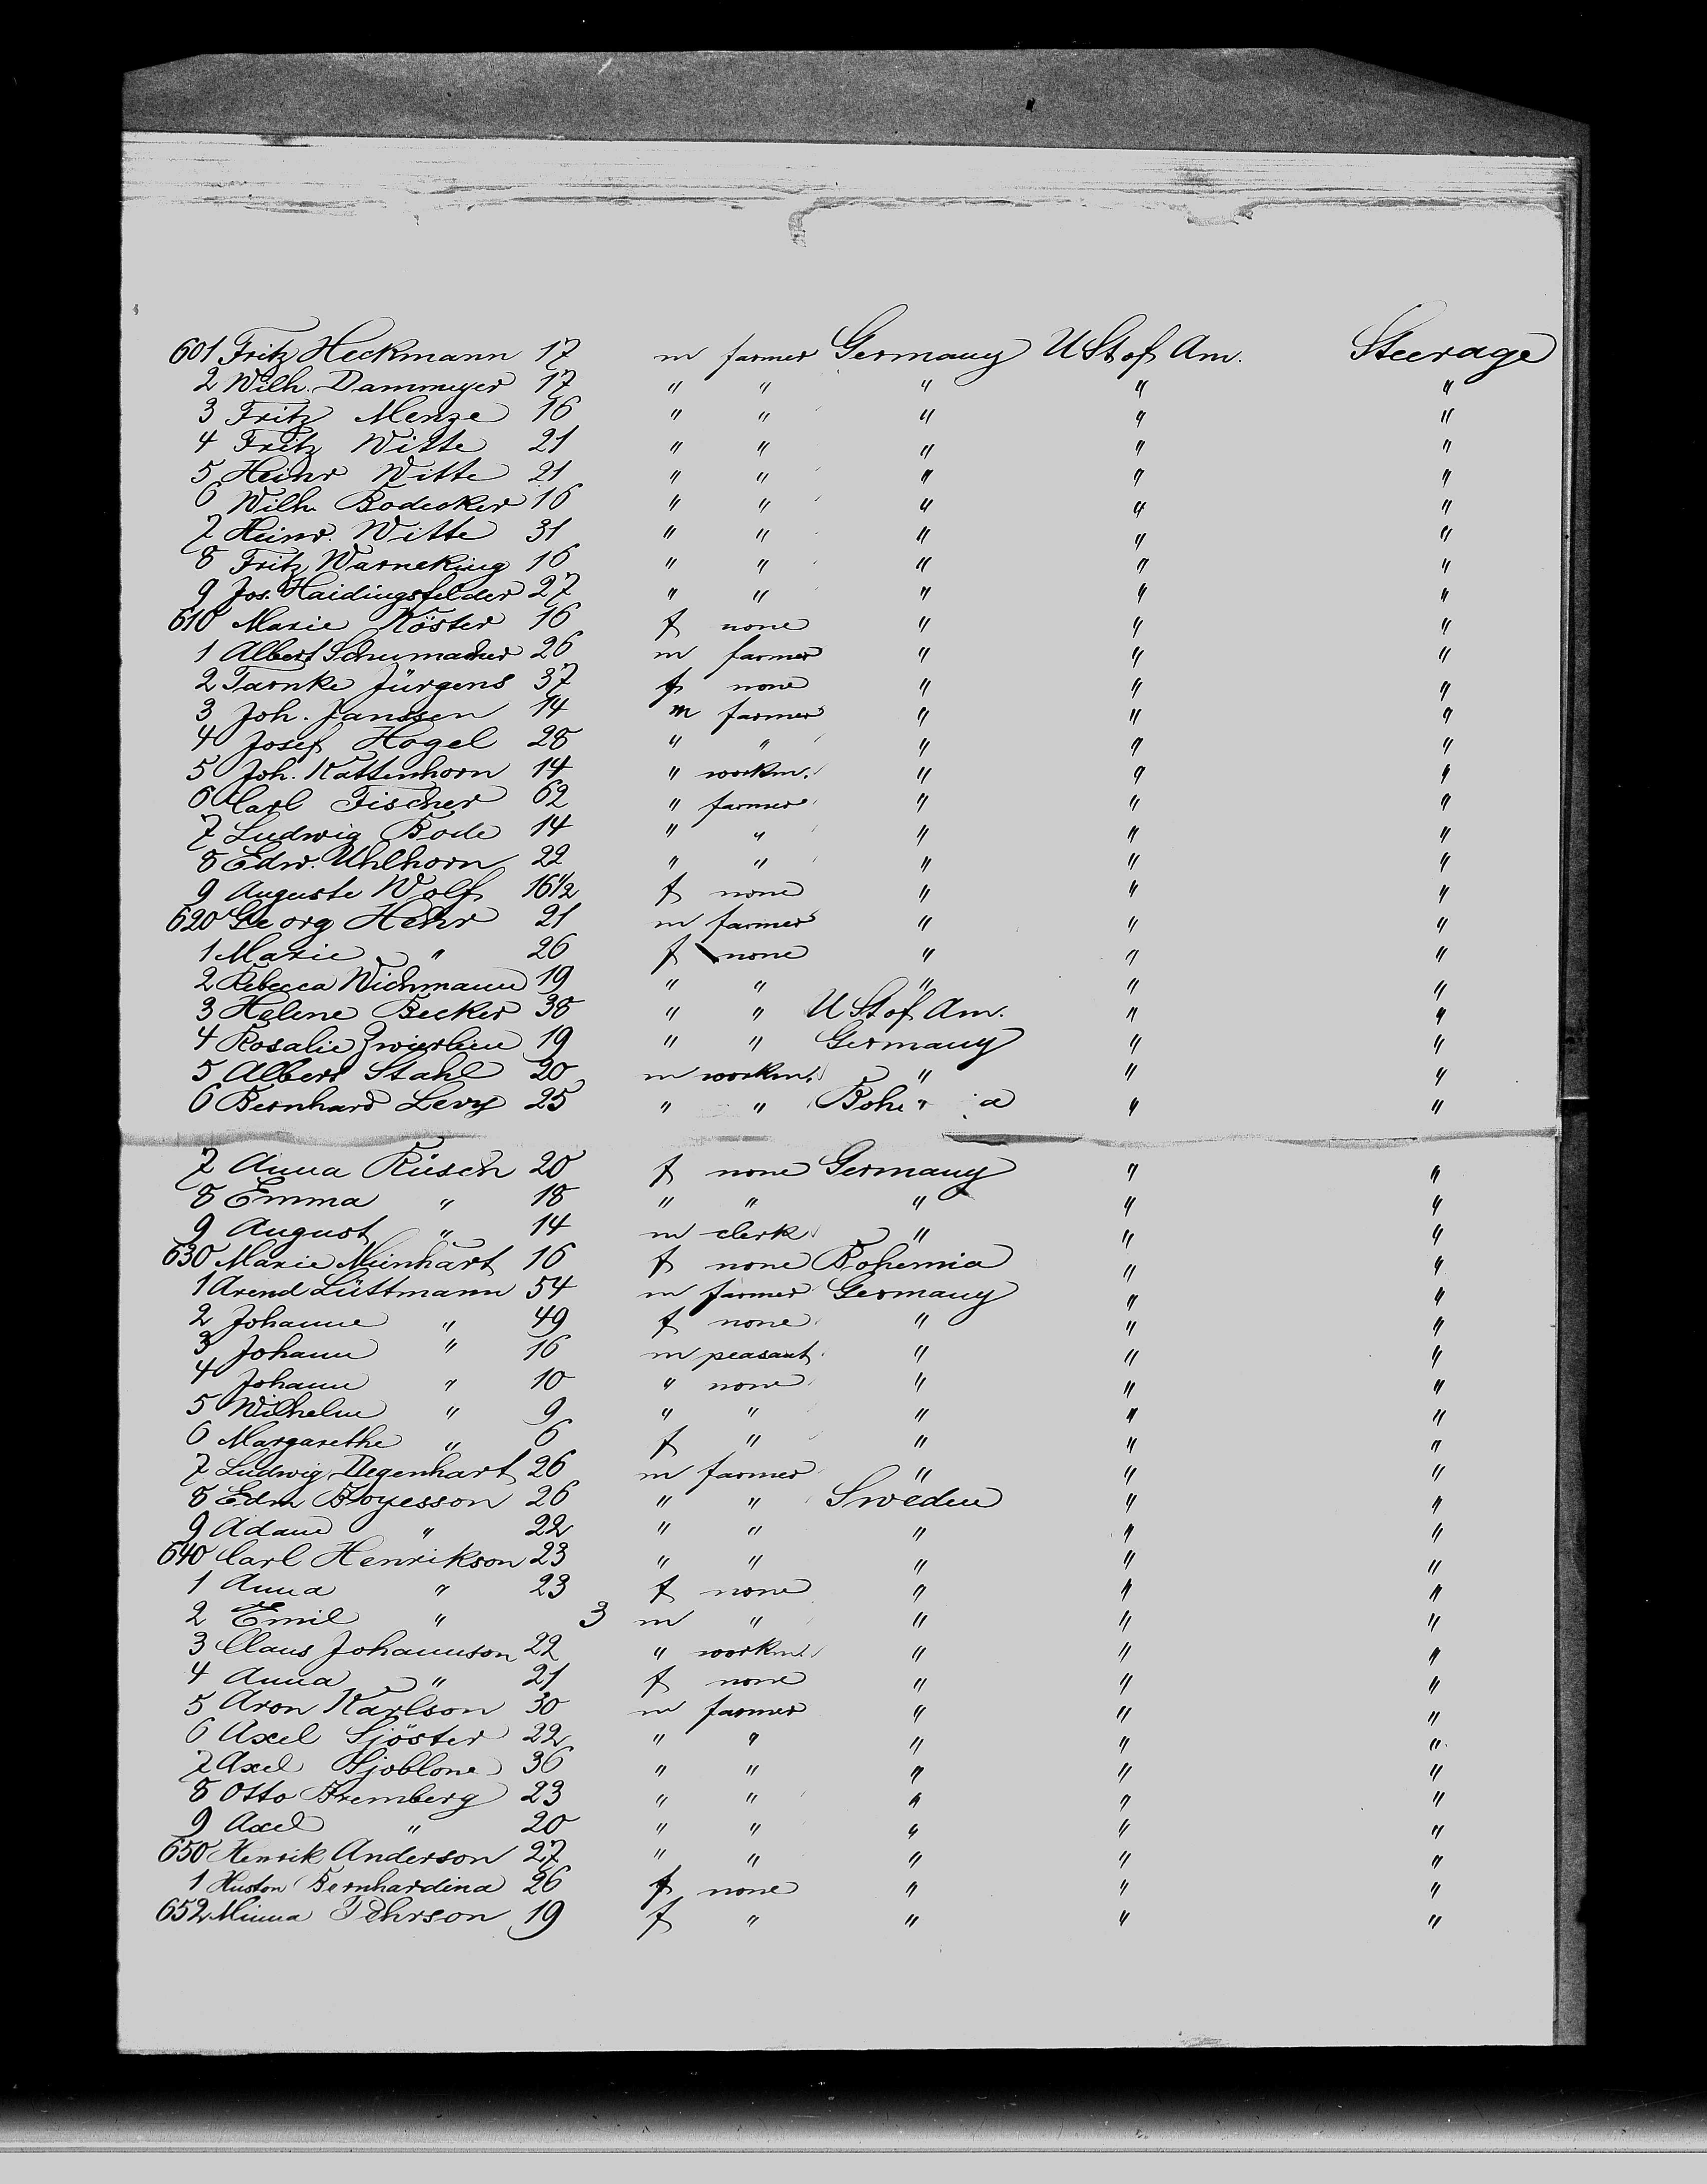 601 Fritz Heckmann 17 m farmer Germany U St of Am. Steerage
2 Wilh. Dammeyer 17 " " " " "
3 Fritz Menze 16 " " " " "
4 Fritz Witte 21 " " " " "
5 Heinr Witte 21 " " " " "
6 Wilh. Bodecker 16 " " " " "
7 Heinr. Witte 31 " " " " "
8 Fritz Warneking 16 " " " " "
9 Jos. Haidingsfelder 27 " " " " "
610 Marie Köster 16 f none " " "
1 Albert Schumacher 26 m farmer " " "
2 Tarnke Jürgens 37 f none " " "
3 Joh. Janssen 14 m farmer " " "
4 Josef Hogel 28 " " " " "
5 Joh. Kattenhorn 14 " workm. " " "
6 Carl Fischer 62 " farmer " " "
7 Ludwig Bode 14 " " " " "
8 Edw. Uhlhorn 22 " " " " "
9 Auguste Wolf 16 1/2 f none " " "
620 Georg Hehr 21 m farmer " " "
1 Marie " 26 f none " " "
2 Rebecca Wichmann 19 " " " " "
3 Helene Becker 38 " " U St of Am. " "
4 Rosalie Zwierlein 19 " " Germany " "
5 Albert Stahl 20 m workm. " " "
6 Bernhard Levy 25 " " Bohe a " "
7 Anna Rüsch 20 f none Germany " "
8 Emma " 18 " " " " "
9 August " 14 m clerk " " "
630 Marie Meinhart 16 f none Bohemia " "
1 Arend Lüttmann 54 m farmer Germany " "
2 Johanne " 49 f none " " "
3 Johann " 16 m peasant " " "
4 Johann " 10 " none " " "
5 Wilhelm " 9 " " " " "
6 Margarethe " 6 f " " " "
7 Ludwig Degenhart 26 m farmer " " "
8 Edm Boyesson 26 " " Sweden " "
9 Adam " 22 " " " " "
640 Carl Henrikson 23 " " " " "
1 Anna " 23 f none " " "
2 Emil " 3 m " " " "
3 Claus Johannson 22 " workm. " " "
4 Anna " 21 f none " " "
5 Aron Karlson 30 m farmer " " "
6 Axel Sjöster 22 " " " " "
7 Axel Sjoblone 36 " " " " "
8 Otto Bremberg 23 " " " " "
9 Axel " 20 " " " " "
650 Henrik Anderson 27 " " " " "
1 Huston Bernhardina 26 f none " " "
652 Minna Pehrson 19 f " " " "